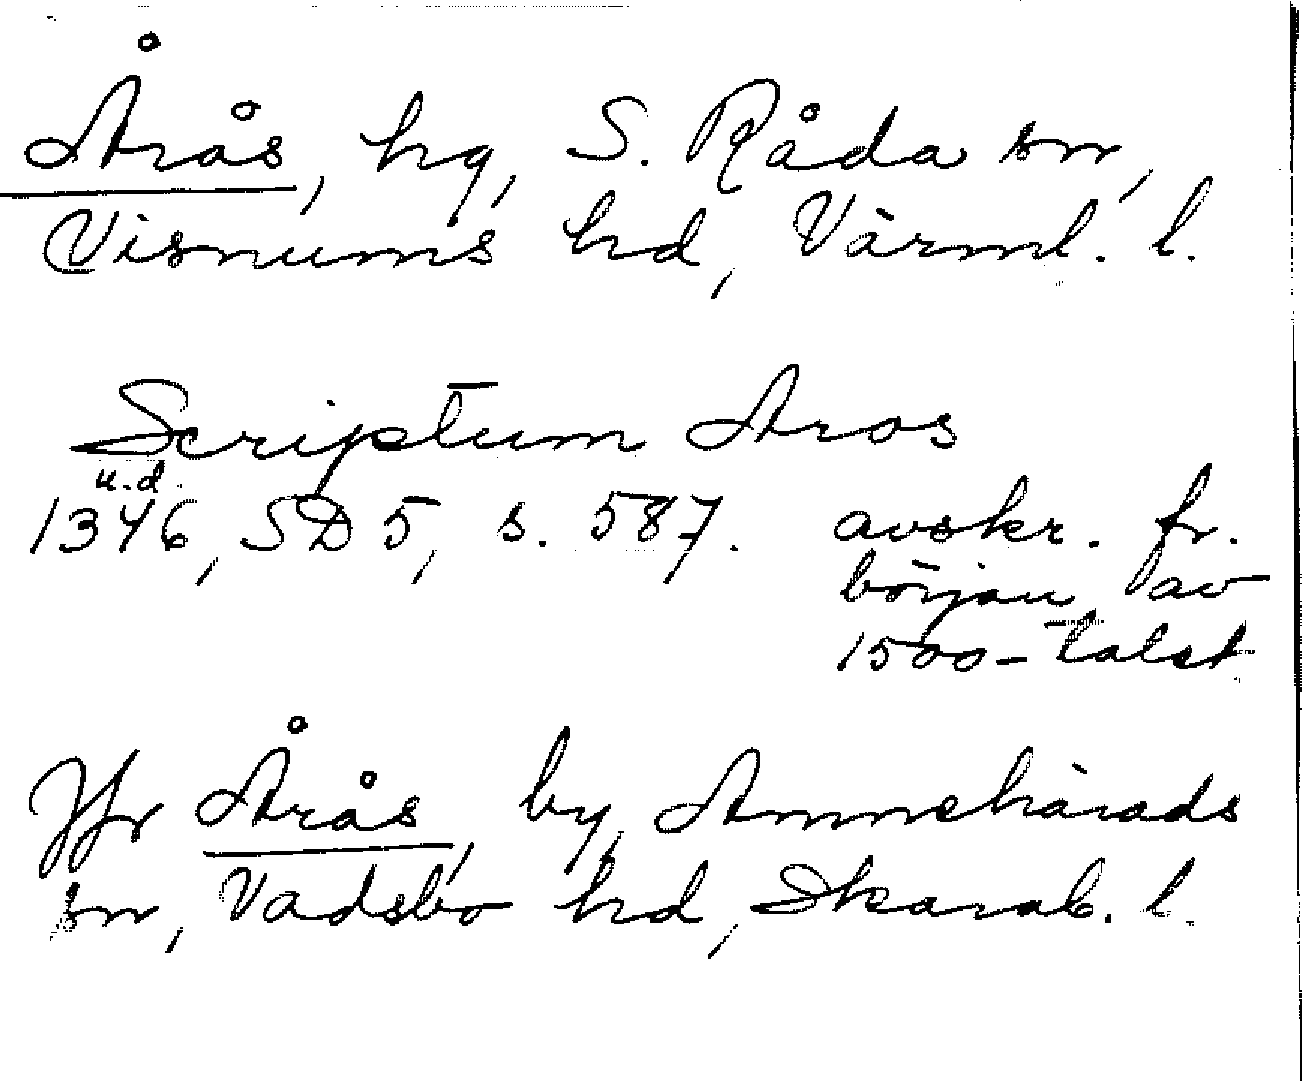 Årås, hg, S. Råda sn,
Visnums hd, Värml. l.
Scriptum Aros
u.d.
1346, SD 5, s. 587. avskr. fr.
början av
1500-talet
Jfr Årås, by, Amnehärads
sn, Vadsbo hd, Skarab. l.